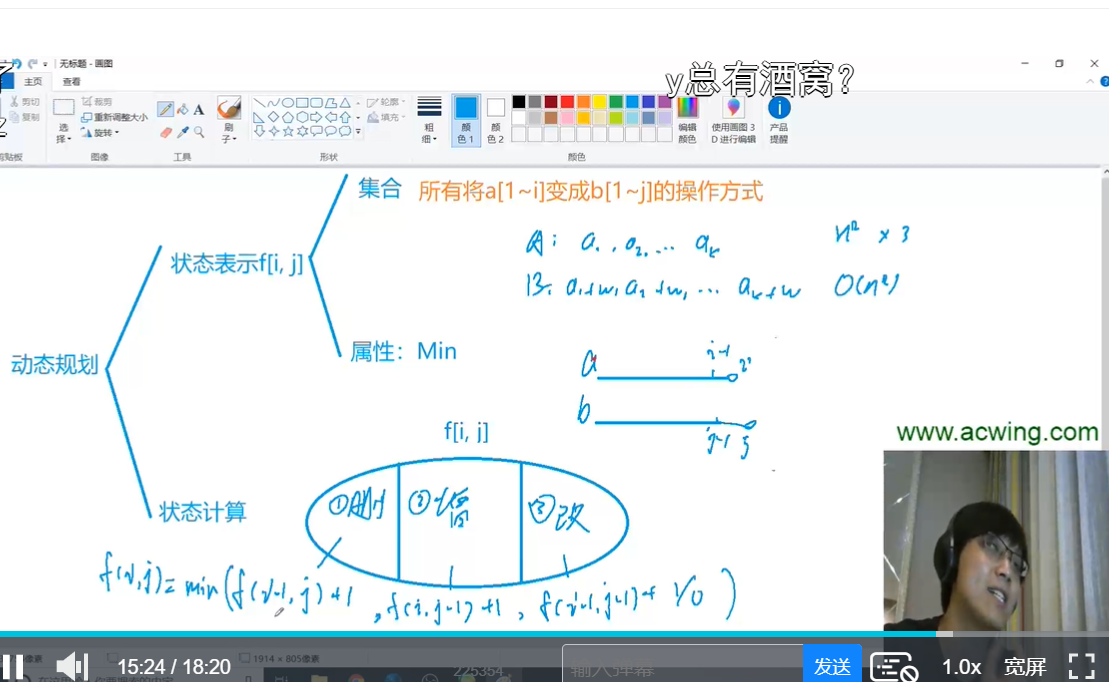 无标题 - 画图
y总有酒窝?
主页 查看
剪切
复制
选择
裁剪
重新调整大小
旋转
刷子
轮廓
填充
粗细
颜色 1
颜色 2
编辑颜色
使用画图 3D 进行编辑
产品提醒
剪贴板 图像 工具 形状 颜色
集合 所有将a[1~i]变成b[1~j]的操作方式
A: a₁, a₂, … aₖ n² × 3
B: a₁+w, a₂+w, … aₖ+w O(n²)
状态表示f[i, j]
属性：Min
动态规划
a i-1 i
b j-1 j
f[i, j]
www.acwing.com
①删 ②增 ③改
状态计算
f(i,j)=min(f(i-1,j)+1, f(i,j-1)+1, f(i-1,j-1)+1/0)
1914 × 805像素
15:24 / 18:20
225354
输入弹幕
发送
1.0x
宽屏